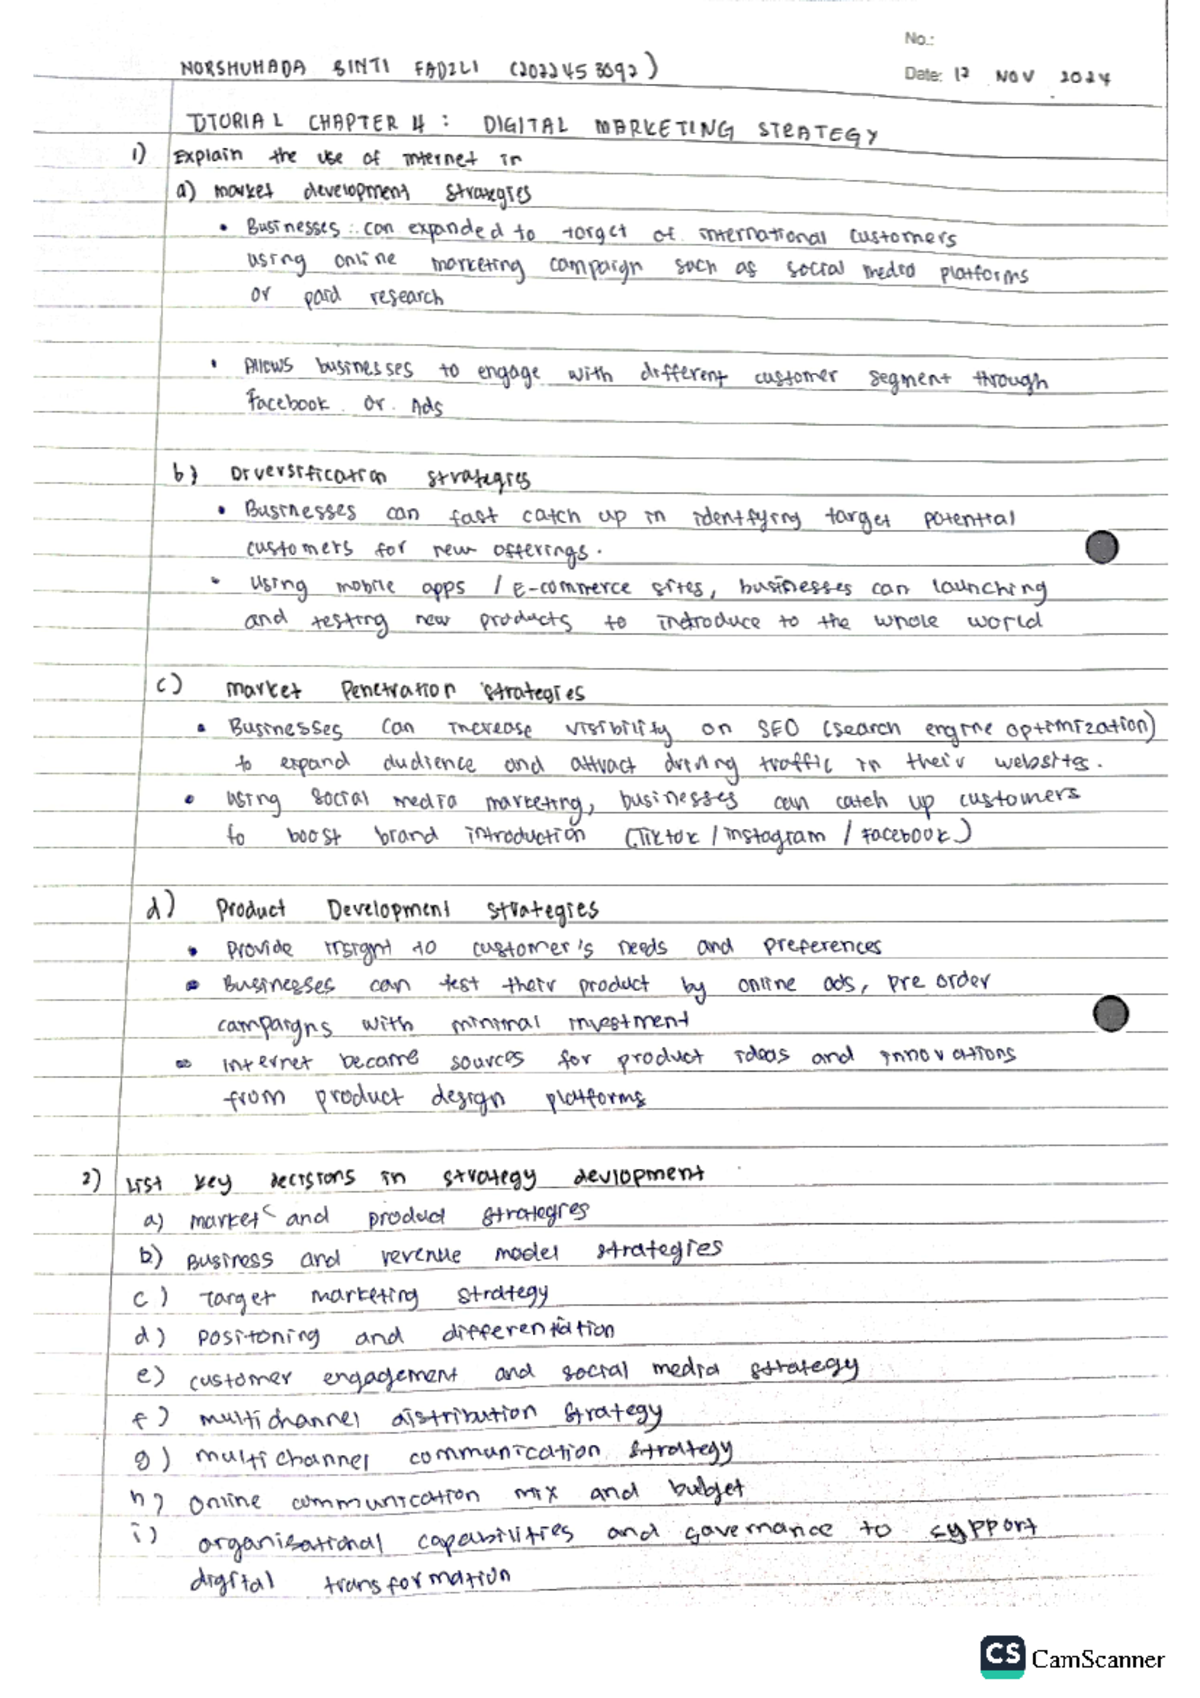 No.:
NORSHUHADA BINTI FADZLI (2022453092)
Date: 12 NOV 2024
TUTORIAL CHAPTER 4 : DIGITAL MARKETING STRATEGY
1) Explain the use of internet in
a) market development strategies
• Businesses can expanded to target of international customers
using online marketing campaign such as social media platforms
or paid research
• Allows businesses to engage with different customer segment through
Facebook or Ads
b) Diversification strategies
• Businesses can fast catch up in identfying target potential
customers for new offerings.
• using mobile apps / E-commerce sites, businesses can launching
and testing new products to introduce to the whole world
c) market Penetration strategies
• Businesses can increase visibility on SEO (search engine optimization)
to expand audience and attract driving traffic in their websites.
• using social media marketing, businesses can catch up customers
to boost brand introduction (Tiktok / instagram / Facebook)
d) Product Development strategies
• Provide insight to customer's needs and preferences
• Businesses can test their product by online ads, pre order
campaigns with minimal investment
• internet became sources for product ideas and innovations
from product design platforms
2) List key decisions in strategy devlopment
a) market and product strategies
b) Business and revenue model strategies
c) Target marketing strategy
d) positoning and differentiation
e) customer engagement and social media strategy
f) multichannel distribution strategy
g) multichannel communication strategy
h) online communication mix and budget
i) organisational capabilities and governance to sypport
digital transformation
CS CamScanner